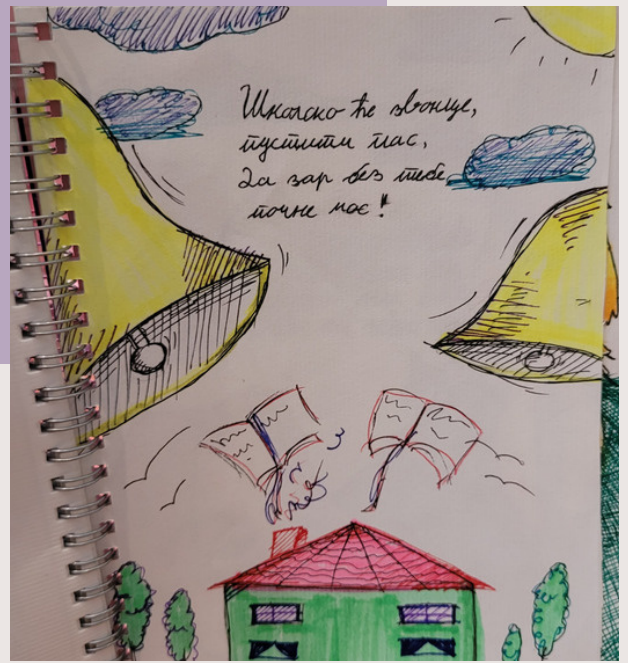 Школско ће звонце,
пустити глас,
За зар без тебе
почне час!